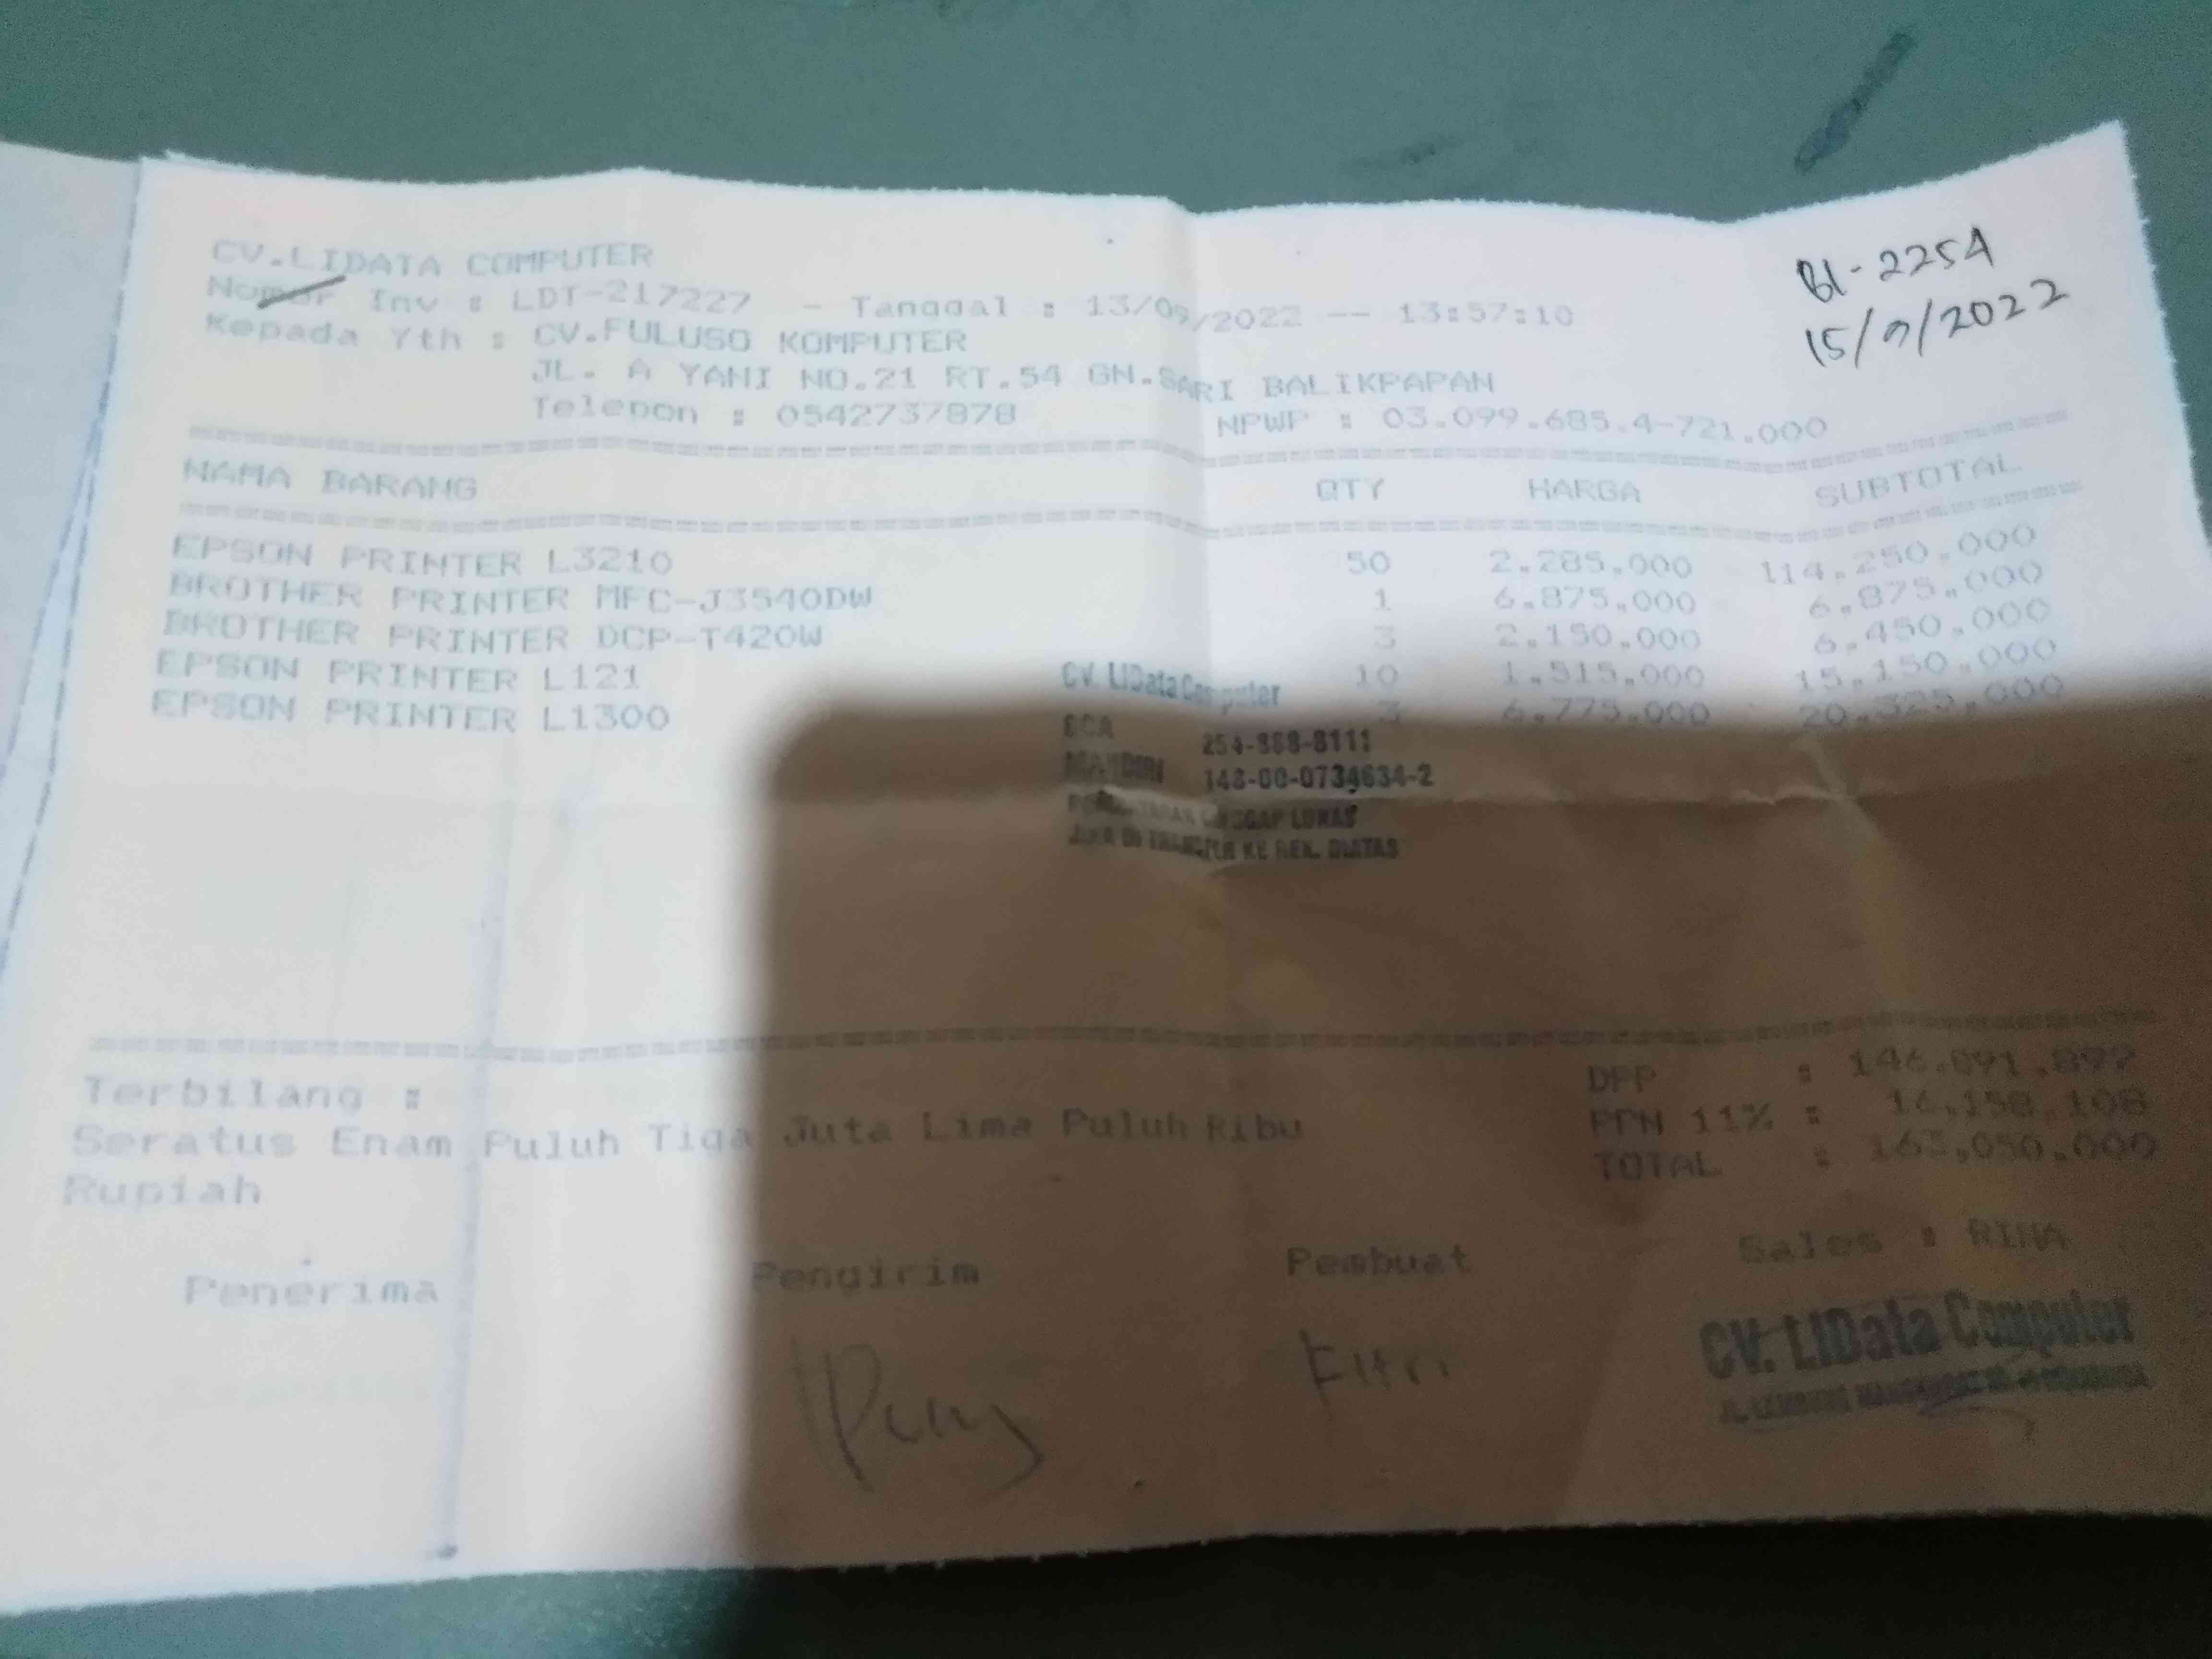 BI-2254
15/9/2022
CV.LIDATA COMPUTER
Nomor Inv : LDT-217227 - Tanggal : 13/09/2022 -- 13:57:10
Kepada Yth : CV.FULUSO KOMPUTER
JL. A YANI NO.21 RT.54 GN.SARI BALIKPAPAN
Telepon : 0542737878 NPWP : 03.099.685.4-721.000
NAMA BARANG QTY HARGA SUBTOTAL
EPSON PRINTER L3210 50 2.285.000 114.250.000
BROTHER PRINTER MFC-J3540DW 1 6.875.000 6.875.000
BROTHER PRINTER DCP-T420W 3 2.150.000 6.450.000
EPSON PRINTER L121 10 1.515.000 15.150.000
EPSON PRINTER L1300 3 6.775.000 20.325.000
CV. LIData Computer
BCA 254-888-8111
MANDIRI 148-00-0734634-2
PEMBAYARAN DIANGGAP LUNAS
JIKA DI TRANSFER KE REK. DIATAS
Terbilang :
Seratus Enam Puluh Tiga Juta Lima Puluh Ribu
Rupiah
DPP : 146.891.892
PPN 11% : 16.158.108
TOTAL : 163,050.000
Penerima Pengirim Pembuat Sales : RINA
Fitri
CV. LIData Computer